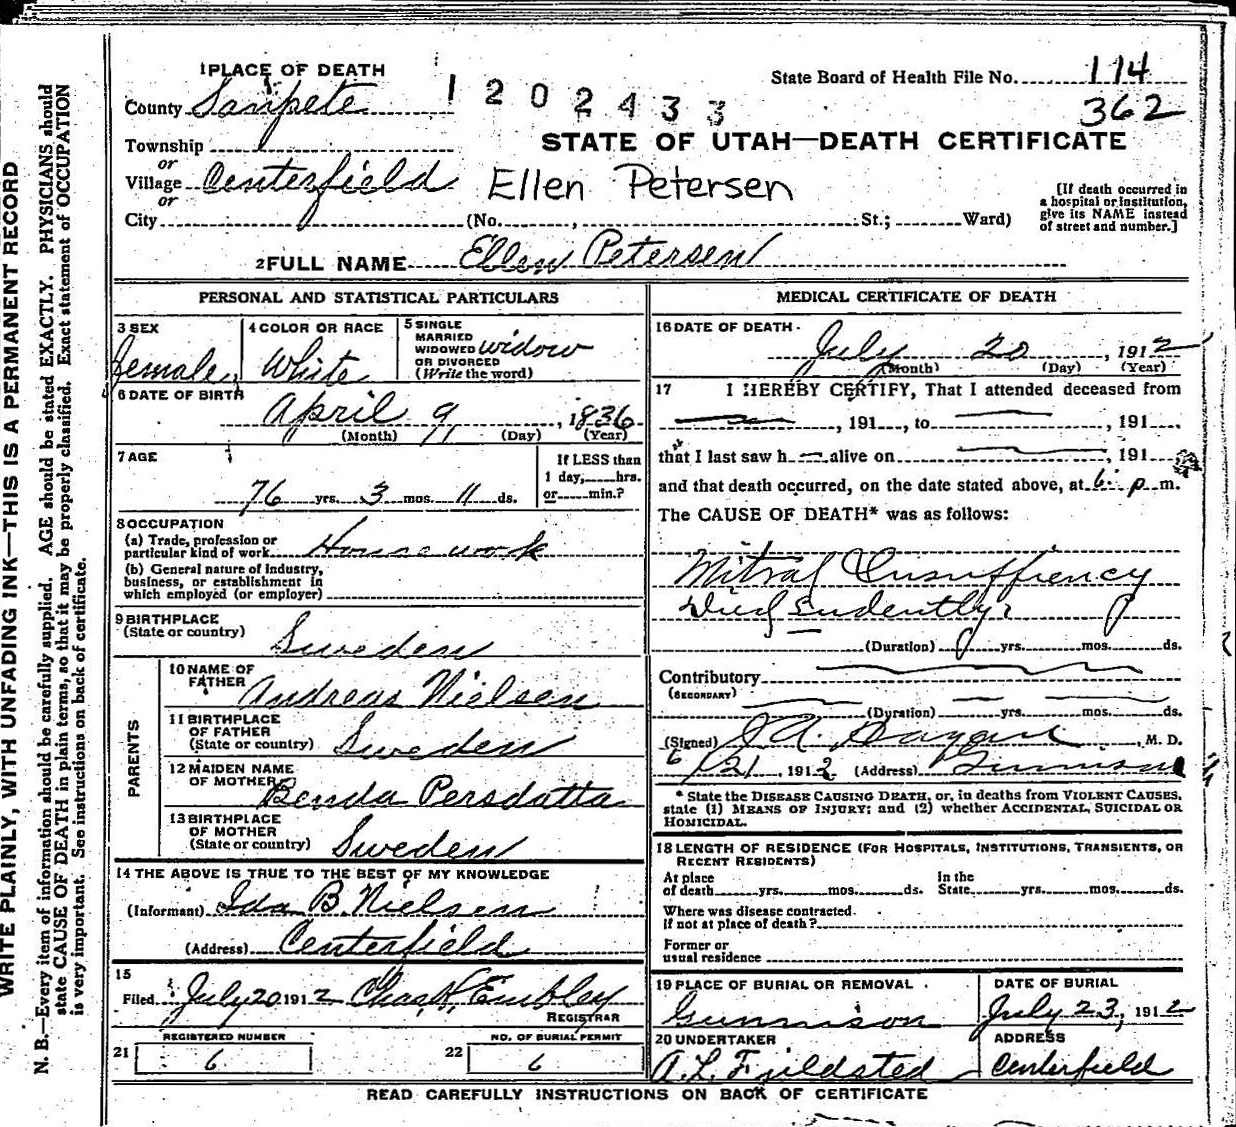 1 PLACE OF DEATH
State Board of Health File No. 114
County Sanpete
1202433
362
STATE OF UTAH—DEATH CERTIFICATE
Township
or
Village Centerfield
Ellen Petersen
or
City (No. , St.; Ward)
[If death occurred in
a hospital or institution,
give its NAME instead
of street and number.]
2 FULL NAME Ellen Petersen
PERSONAL AND STATISTICAL PARTICULARS
3 SEX
female
4 COLOR OR RACE
White
5 SINGLE
MARRIED
WIDOWED widow
OR DIVORCED
(Write the word)
6 DATE OF BIRTH
April 9, 1836
(Month) (Day) (Year)
7 AGE
76 yrs. 3 mos. 11 ds.
If LESS than
1 day, hrs.
or min.?
8 OCCUPATION
(a) Trade, profession or
particular kind of work Housework
(b) General nature of industry,
business, or establishment in
which employed (or employer)
9 BIRTHPLACE
(State or country) Sweden
PARENTS
10 NAME OF
FATHER Andreas Nielsen
11 BIRTHPLACE
OF FATHER
(State or country) Sweden
12 MAIDEN NAME
OF MOTHER Benda Persdatta
13 BIRTHPLACE
OF MOTHER
(State or country) Sweden
14 THE ABOVE IS TRUE TO THE BEST OF MY KNOWLEDGE
(Informant) Ida B. Nielsen
(Address) Centerfield
15
Filed July 20 1912 Chas. Embley
REGISTRAR
REGISTERED NUMBER
21 6
NO. OF BURIAL PERMIT
22 6
MEDICAL CERTIFICATE OF DEATH
16 DATE OF DEATH
July 20, 1912
(Month) (Day) (Year)
17 I HEREBY CERTIFY, That I attended deceased from
, 191 , to , 191
that I last saw h alive on , 191
and that death occurred, on the date stated above, at 6 p m.
The CAUSE OF DEATH* was as follows:
Mitral Insuffiency
Died Sudently
(Duration) yrs. mos. ds.
Contributory
(SECONDARY)
(Duration) yrs. mos. ds.
(Signed) , M. D.
/21, 1912 (Address) Gunnison
* State the DISEASE CAUSING DEATH, or, in deaths from VIOLENT CAUSES,
state (1) MEANS OF INJURY; and (2) whether ACCIDENTAL, SUICIDAL OR
HOMICIDAL.
18 LENGTH OF RESIDENCE (FOR HOSPITALS, INSTITUTIONS, TRANSIENTS, OR
RECENT RESIDENTS)
At place
of death yrs. mos. ds.
In the
State yrs. mos. ds.
Where was disease contracted
if not at place of death?
Former or
usual residence
19 PLACE OF BURIAL OR REMOVAL
Gunnison
DATE OF BURIAL
July 23, 1912
20 UNDERTAKER
A. L. Fjeldsted
ADDRESS
Centerfield
READ CAREFULLY INSTRUCTIONS ON BACK OF CERTIFICATE
WRITE PLAINLY, WITH UNFADING INK—THIS IS A PERMANENT RECORD
N. B.—Every item of information should be carefully supplied. AGE should be stated EXACTLY. PHYSICIANS should
state CAUSE OF DEATH in plain terms, so that it may be properly classified. Exact statement of OCCUPATION
is very important. See instructions on back of certificate.